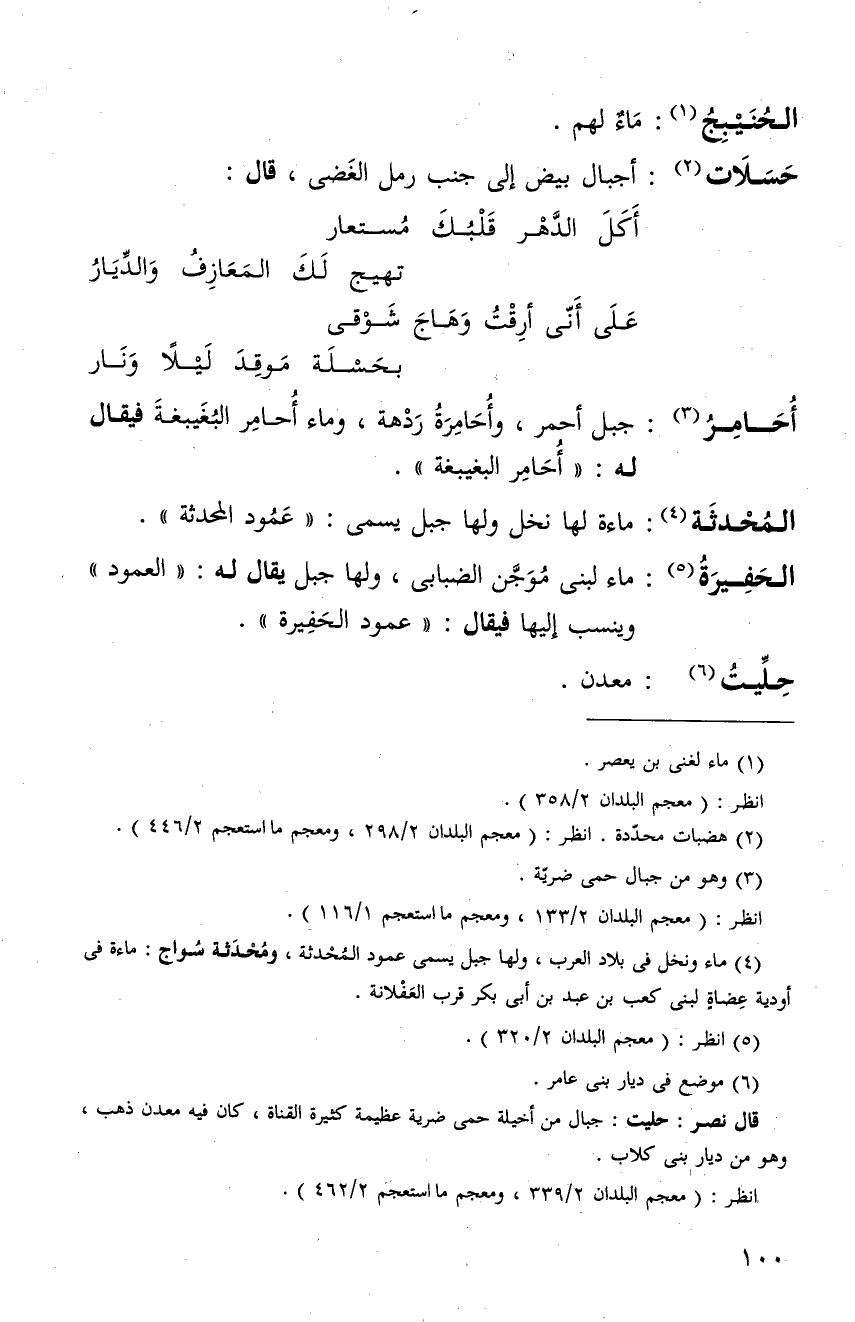 الـحُنَيْبِجُ (١) : مَاءٌ لهم .
حَسَـلَات (٢) : أجبال بيض إلى جنب رمل الغَضى ، قال :
أَكَلَ الدَّهْـر قَلْبُـكَ مُسـتعار
تهيج لَكَ المَعَازِفُ وَالدِّيَارُ
عَـلَى أَنَّى أرِقْتُ وَهَـاجَ شَـوْقى
بـحَسْـلَـة مَوقِدَ لَيْـلًا وَنَـار
أُحَـامِـرُ (٣) : جبل أحمر ، وأُحَامِرَةُ رَدْهة ، وماء أُحـامِر البُغَيبغـةَ فيقـال
لـه : « أُحَامِر البغيبغة » .
الـمُحْـدثَـة (٤) : ماءة لها نخل ولها جبل يسمى : « عَمُود المحدثة » .
الـحَفِـيرَةُ (٥) : ماء لبنى مُوَجَّن الضبابى ، ولها جبل يقال لـه : « العمود »
وينسب إليها فيقال : « عمود الحَفِيرة » .
حِـلِّيـتُ (٦) : معدن .
(١) ماء لغنى بن يعصر .
انظر : ( معجم البلدان ٣٥٨/٢ ) .
(٢) هضبات محدّدة . انظر : ( معجم البلدان ٢٩٨/٢ ، ومعجم ما استعجم ٤٤٦/٢ ) .
(٣) وهو من جبال حمى ضريّة .
انظر : ( معجم البلدان ١٣٣/٢ ، ومعجم ما استعجم ١١٦/١ ) .
(٤) ماء ونخل فى بلاد العرب ، ولها جبل يسمى عمود المُحْدثة ، ومُحْـدَثـة سُـواج : ماءة فى
أودية عِضاةٍ لبنى كعب بن عبد بن أبى بكر قرب العَفْلانة .
(٥) انظر : ( معجم البلدان ٣٢٠/٢ ) .
(٦) موضع فى ديار بنى عامر .
قال نصـر : حليت : جبال من أخيلة حمى ضرية عظيمة كثيرة القناة ، كان فيه معدن ذهب ،
وهو من ديار بنى كلاب .
انظر : ( معجم البلدان ٣٣٩/٢ ، ومعجم ما استعجم ٤٦٢/٢ ) .
١٠٠